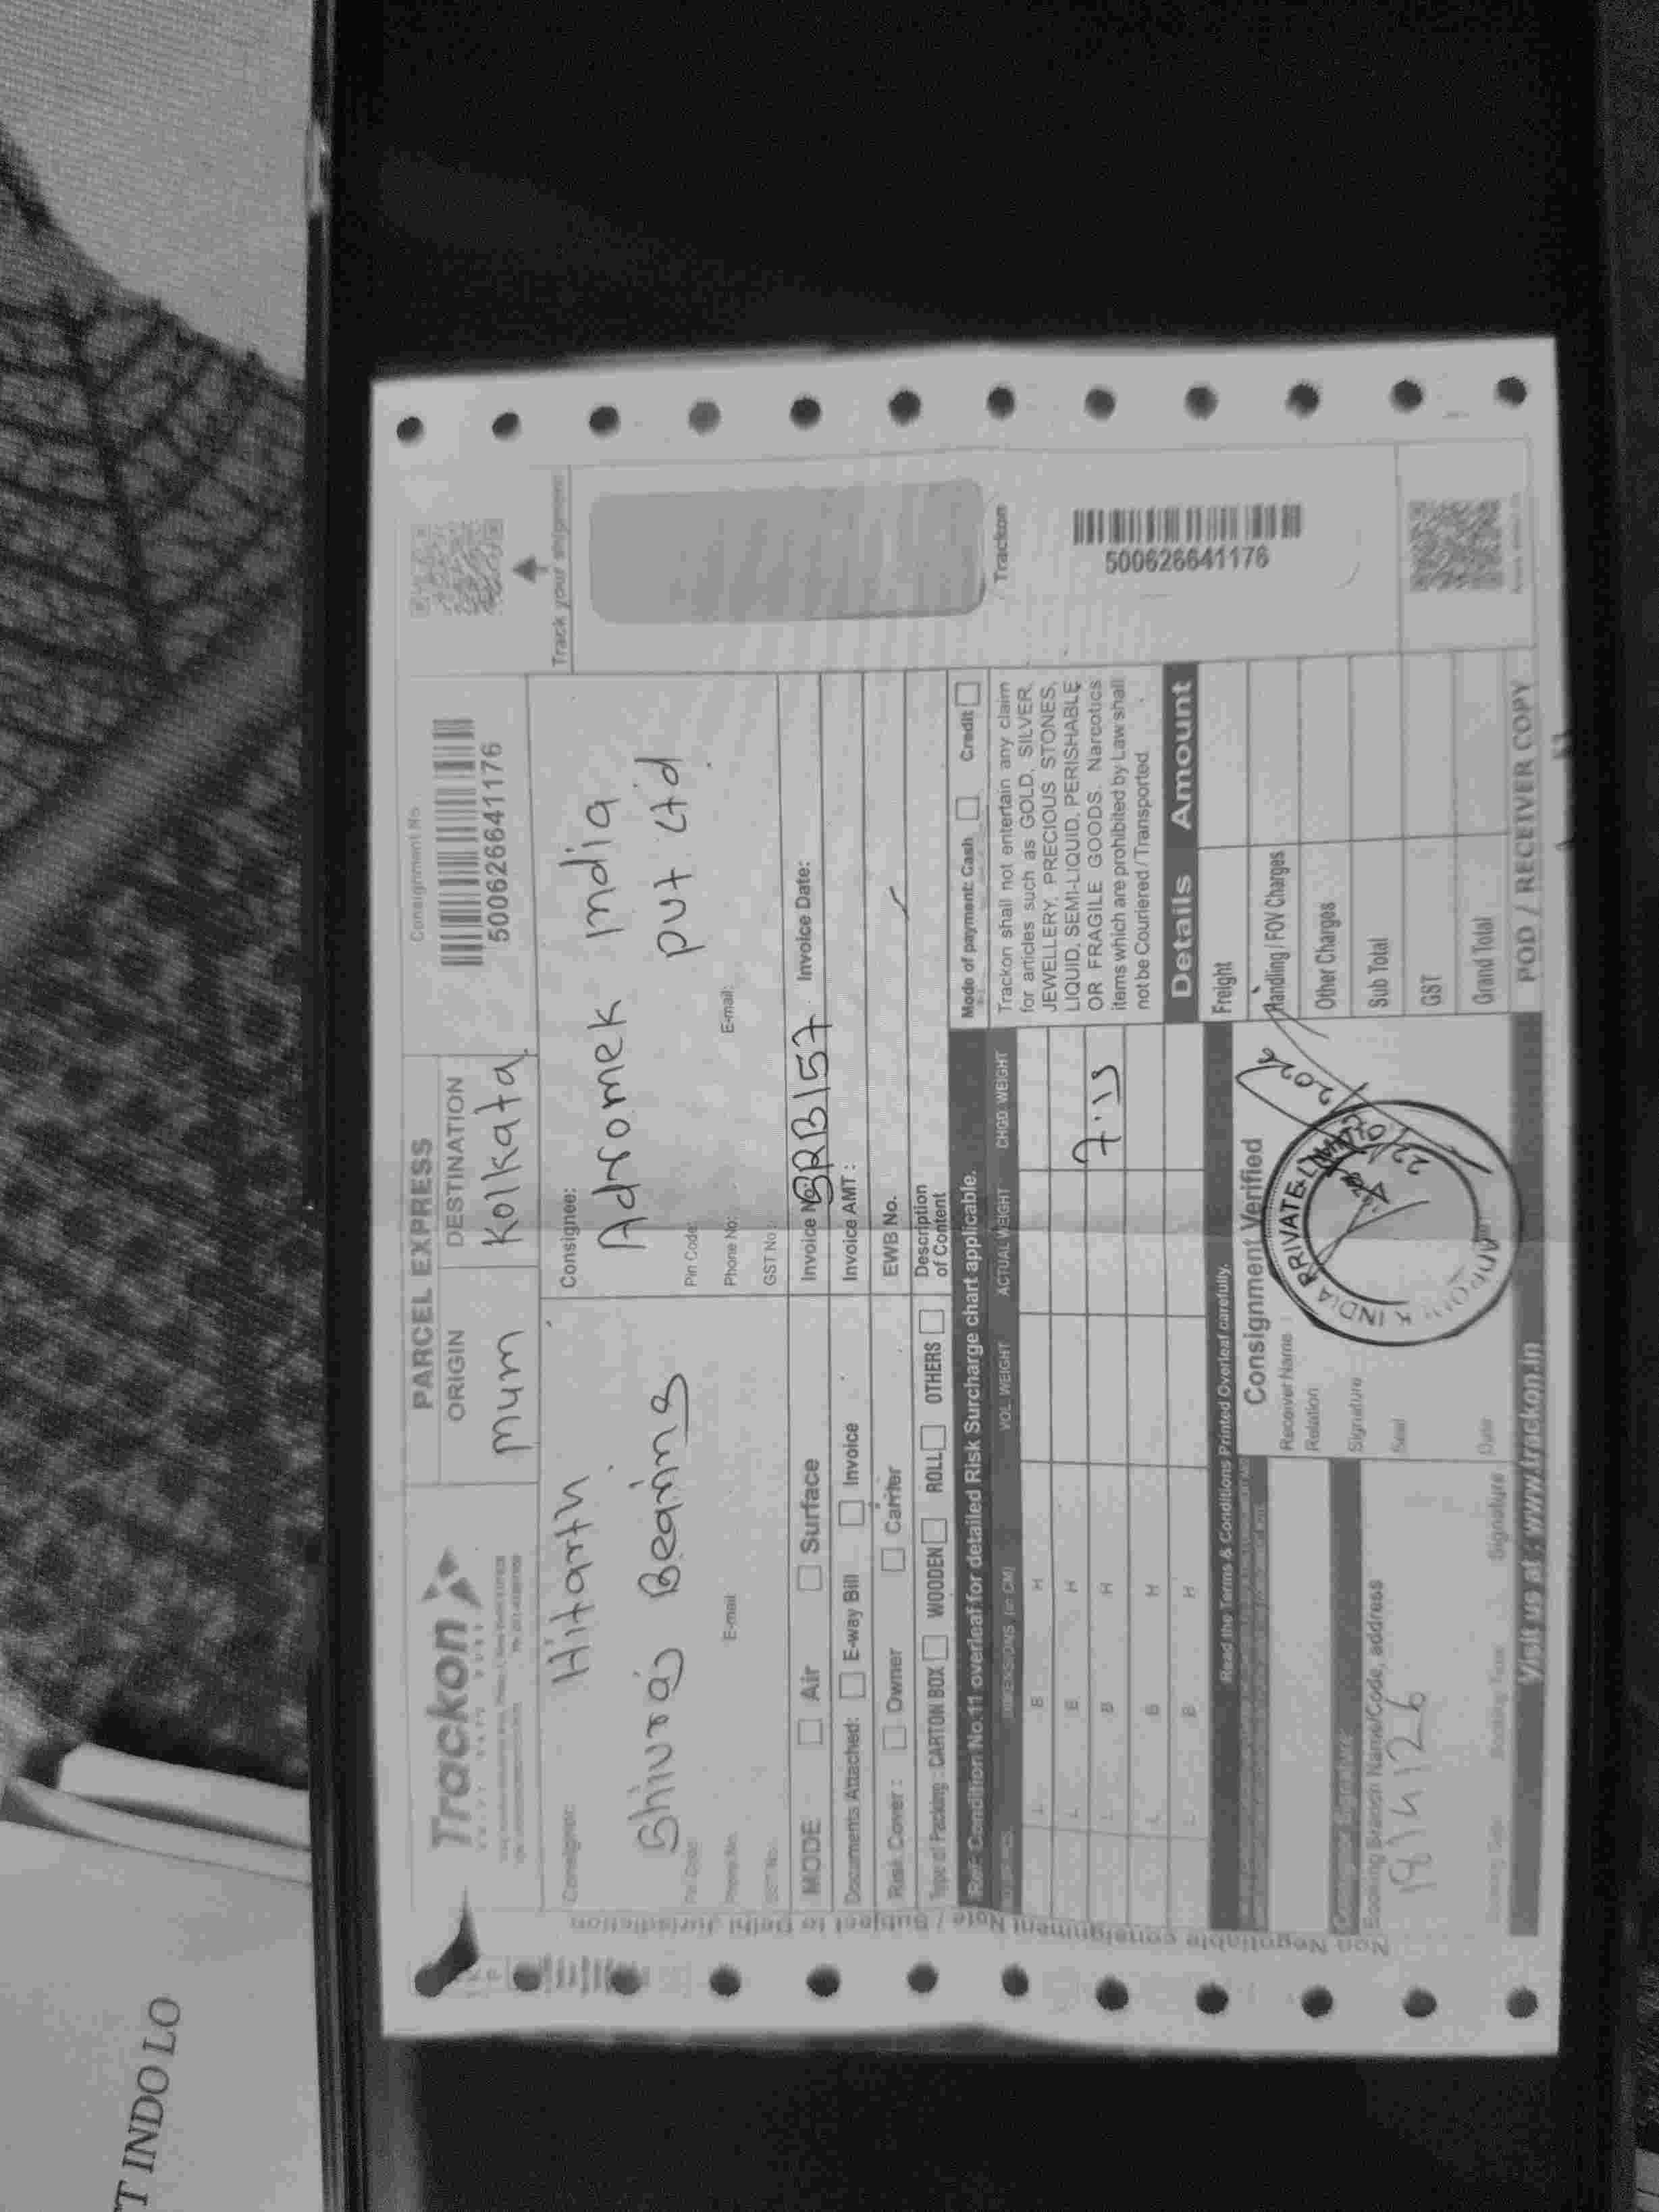 Trackon
PARCEL EXPRESS
ORIGIN
DESTINATION
mum
Kolkata
Consignment No
500626641176
Track your shipment
Consignor:
Hitarth
Consignee:
Adromek India
Pvt Ltd
Bearing
Pin Code:
E-mail:
Phone No:
GST No.:
Pin Code:
E-mail:
Phone No:
GST No.:
MODE Air Surface
Invoice No. BRB157 Invoice Date:
Documents Attached: E-way Bill Invoice
Invoice AMT :
Risk Cover : Owner Carrier
EWB No.
Type of Packing : CARTON BOX WOODEN ROLL OTHERS
Description
of Content
Ref: Condition No.11 overleaf for detailed Risk Surcharge chart applicable.
Mode of payment: Cash Credit
DIMENSIONS (in CM) VOL. WEIGHT ACTUAL WEIGHT CHGD WEIGHT
L B H
L B H
L B H
L B H
L B H
Trackon shall not entertain any claim
for articles such as GOLD, SILVER,
JEWELLERY, PRECIOUS STONES,
LIQUID, SEMI-LIQUID, PERISHABLE
OR FRAGILE GOODS. Narcotics
items which are prohibited by Law shall
not be Couriered / Transported.
Trackon
500626641176
Details Amount
Freight
Handling / FOV Charges
Other Charges
Sub Total
GST
Grand Total
Read the Terms & Conditions Printed Overleaf carefully.
Consignment Verified
Receiver Name
Relation
Signature
Seal
Date
INDIA PRIVATE LIMITED
Booking Branch Name/Code, address
Signature
Visit us at : www.trackon.in
POD / RECEIVER COPY
Non Negotiable consignment Note / Subject to Delhi Jurisdiction
T INDO LO